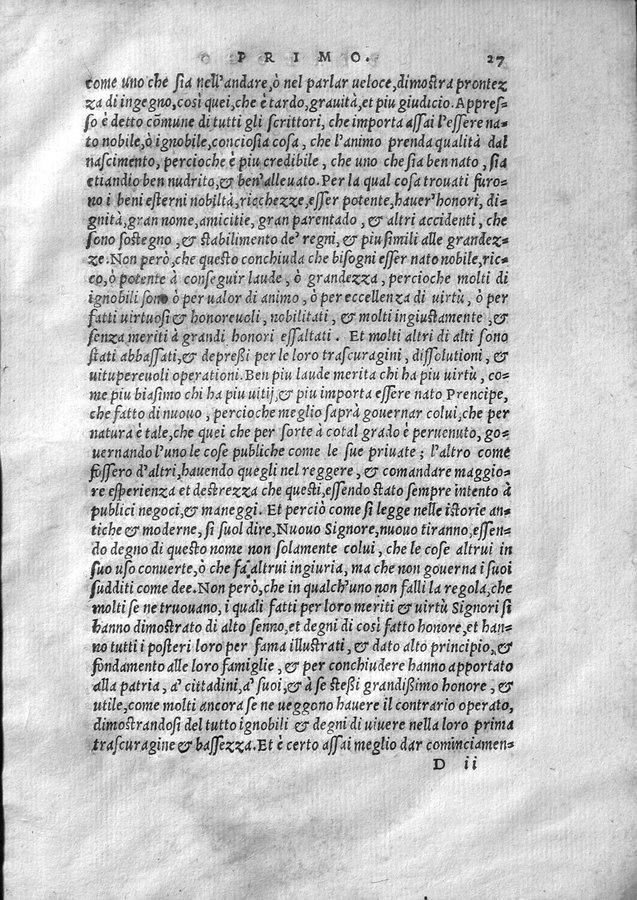 PRIMO. 27
come uno che sia nell'andare, ò nel parlar veloce, dimostra prontez
za di ingegno, così quei, che è tardo, gravità, et piu giudicio. Appres-
so è detto cõmune di tutti gli scrittori, che importa assai l'essere na-
to nobile, ò ignobile, conciosia cosa, che l'animo prenda qualità dal
nascimento, percioche è piu credibile, che uno che sia ben nato, sia
etiandio ben nudrito, & ben'alleuato. Per la qual cosa trouati furo-
no i beni esterni nobiltà, ricchezze, esser potente, hauer'honori, di-
gnità, gran nome, amicitie, gran parentado, & altri accidenti, che
sono sostegno, & stabilimento de' regni, & piu simili alle grandez-
ze. Non però, che questo conchiuda che bisogni esser nato nobile, ric-
co, ò potente à conseguir laude, ò grandezza, percioche molti di
ignobili sono ò per valor di animo, ò per eccellenza di virtù, ò per
fatti virtuosi & honoreuoli, nobilitati, & molti ingiustamente, &
senza meriti à grandi honori essaltati. Et molti altri di alti sono
stati abbassati, & depressi per le loro trascuragini, dissolutioni, &
uituperevoli operationi. Ben piu laude merita chi ha piu uirtù, co-
me piu biasimo chi ha piu uitij, & piu importa essere nato Prencipe,
che fatto di nuouo, percioche meglio saprà gouernar colui, che per
natura è tale, che quei che per sorte à cotal grado è peruenuto, go-
uernando l'uno le cose publiche come le sue priuate; l'altro come
fossero d'altri, hauendo quegli nel reggere, & comandare maggio-
re esperienza et destrezza che questi, essendo stato sempre intento à
publici negoci, & maneggi. Et perciò come si legge nelle istorie an-
tiche & moderne, si suol dire, Nuouo Signore, nuouo tiranno, essen-
do degno di questo nome non solamente colui, che le cose altrui in
suo uso conuerte, ò che fà altrui ingiuria, ma che non gouerna i suoi
sudditi come dee. Non però, che in qualch'uno non falli la regola, che
molti se ne truouano, i quali fatti per loro meriti & uirtù Signori si
hanno dimostrato di alto senno, et degni di così fatto honore, et han-
no tutti i posteri loro per fama illustrati, & dato alto principio, &
fondamento alle loro famiglie, & per conchiudere hanno apportato
alla patria, a' cittadini, a' suoi, & à se stessi grandissimo honore, &
utile, come molti ancora se ne ueggono hauere il contrario operato,
dimostrandosi del tutto ignobili & degni di uiuere nella loro prima
trascuragine & bassezza. Et è certo assai meglio dar cominciamen-
D ii